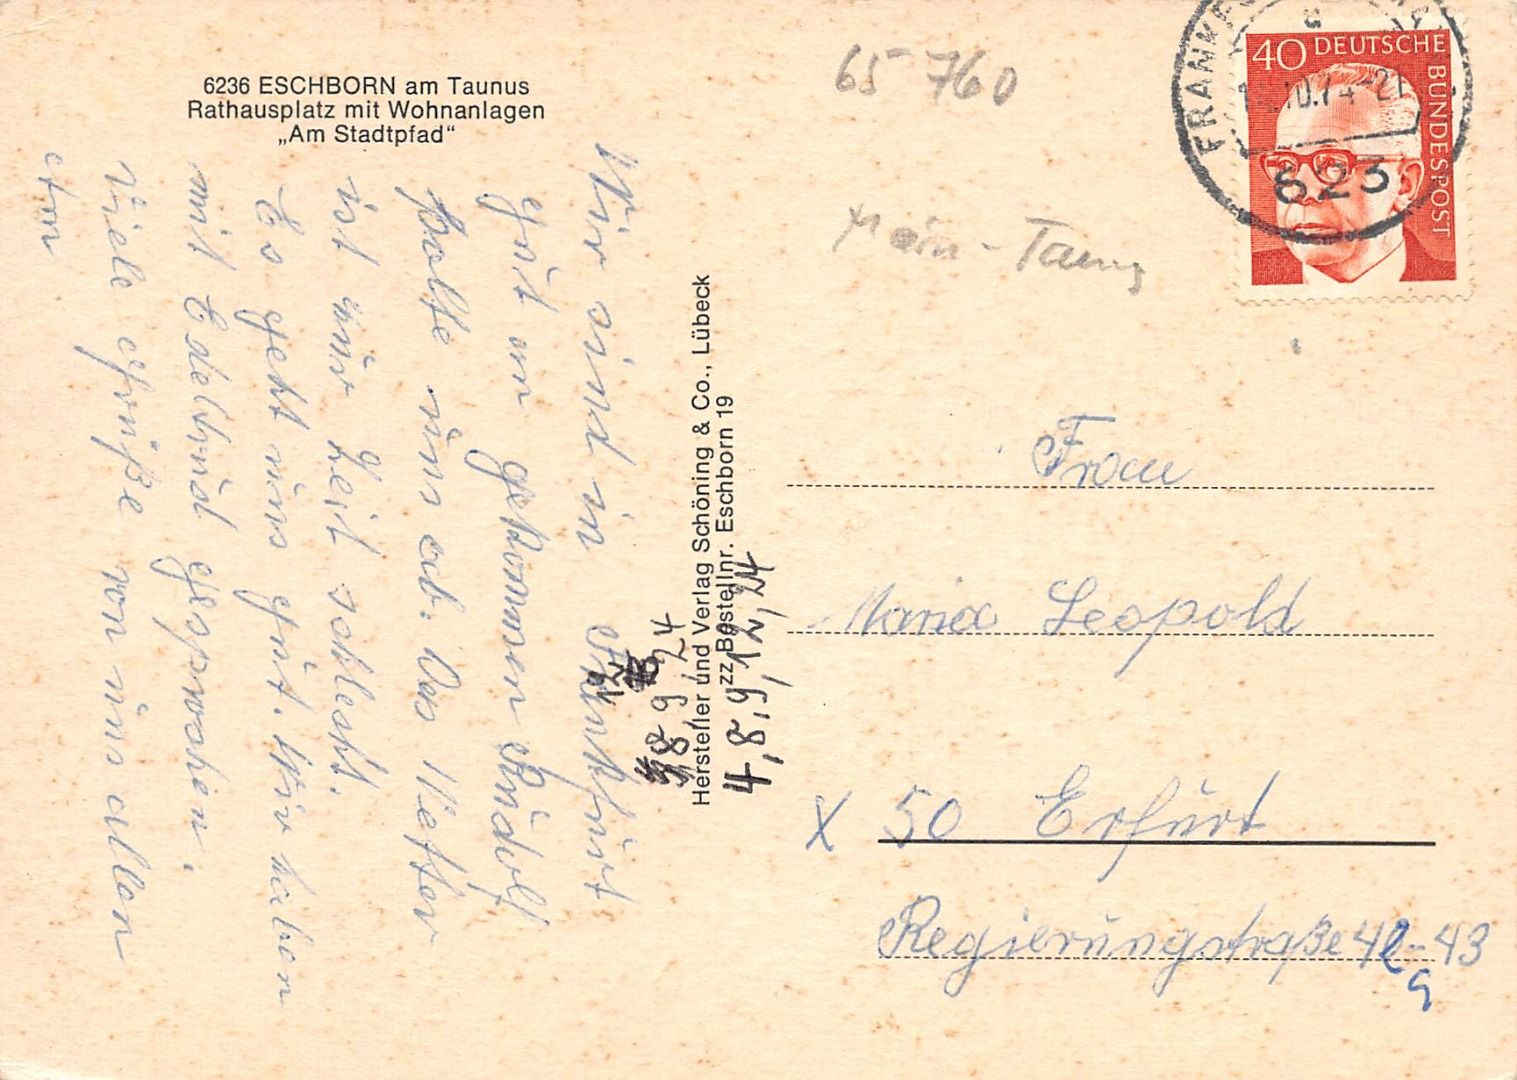 6236 ESCHBORN am Taunus
Rathausplatz mit Wohnanlagen
„Am Stadtpfad“
Wir sind in Frankfurt
gut an gekommen Rudolf
holte uns ab. Das Wetter
ist zur Zeit schlecht.
Es geht uns gut. Wir haben
mit Edeltrud gesprochen.
Viele Grüße von uns allen
Hersteller und Verlag Schöning & Co., Lübeck
zz Bestellnr. Eschborn 19
8, 9, 24
4, 8, 9, 12, 24
65 760
Main-Taunus
40 DEUTSCHE
BUNDESPOST
623
Frau
Maria Leopold
X 50 Erfurt
Regierungstraße 42-43